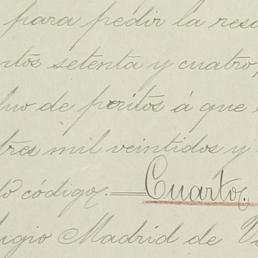 para pedir la res
ntos setenta y cuatro,
de peritos á que
tres mil veintidos y
código. = Cuarto.
legio Madrid de V